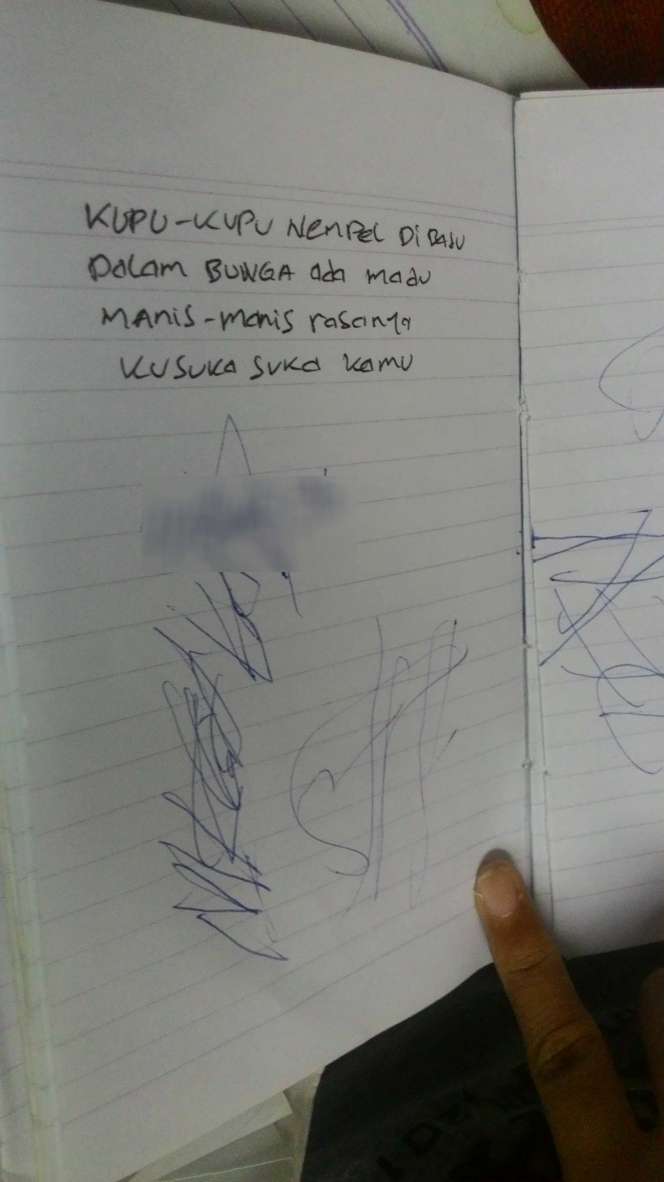 KUPU-KUPU NEMPEL Di BAJU
Dalam BUNGA ada madu
MANiS-manis rasanya
KUSUKA SUKA kamu